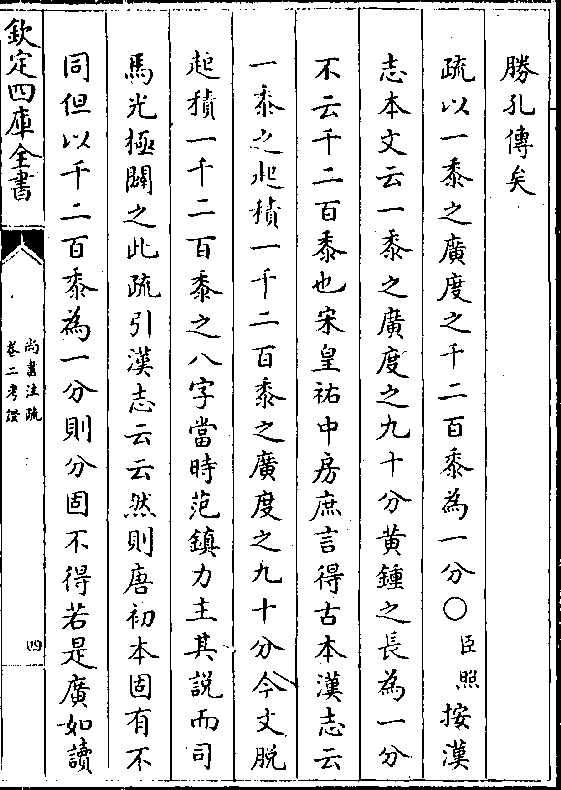 勝孔傳矣
疏以一黍之廣度之千二百黍為一分○臣照按漢
志本文云一黍之廣度之九十分黃鍾之長為一分
不云千二百黍也宋皇祐中房庶言得古本漢志云
一黍之起積一千二百黍之廣度之九十分今文脫
起積一千二百黍之八字當時范鎮力主其說而司
馬光極闢之此疏引漢志云云然則唐初本固有不
同但以千二百黍為一分則分固不得若是廣如讀
欽定四庫全書
尚書注疏
卷二考證
四